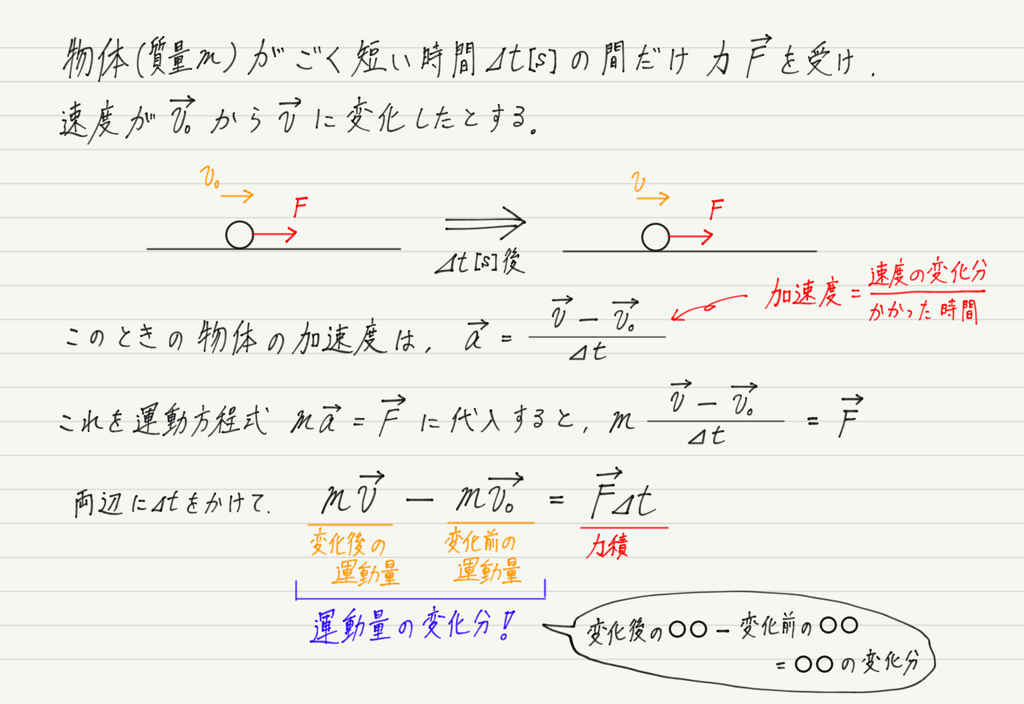 物体(質量m)がごく短い時間Δt[s]の間だけ力F→を受け,
速度がv₀→からv→に変化したとする。
v₀
F
v
F
Δt[s]後
加速度=速度の変化分/かかった時間
このときの物体の加速度は, a→ = (v→ − v₀→)/Δt
これを運動方程式 ma→ = F→ に代入すると, m (v→ − v₀→)/Δt = F→
両辺にΔtをかけて, mv→ − mv₀→ = F→Δt
変化後の 変化前の 力積
運動量 運動量
運動量の変化分!!
変化後の○○ − 変化前の○○
= ○○の変化分